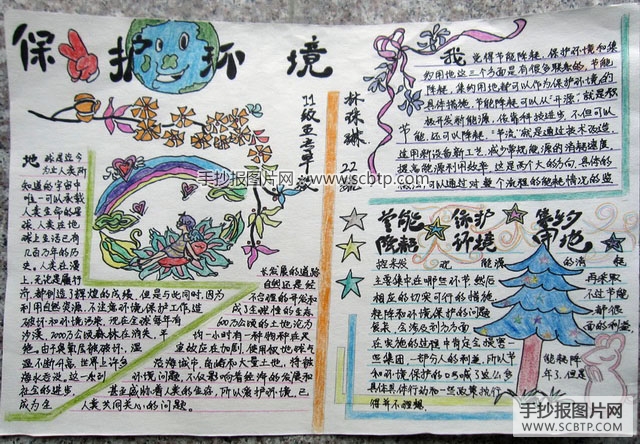 保护环境
11级五专单
林珠琳
22号
地球是迄今
为止人类所
知道的宇宙中
唯一可以承载
人类生命的星
球,人类在地
球上生活已有
几百万年的历
史。人类在漫
长发展的道路
上,无论是履行
自然还是经
济,都创造了辉煌的成绩。但是与此同时,因为
不合理的开发和
利用自然资源,不注意环境保护工作,造
成了全球性的生态
破坏和环境污染。现在全球每年有
600万公顷的土地沦为
沙漠,2000万公顷森林在消失,平
均一小时有一种物种在灭
室效应在加剧,使用极地球气
温不断升高,世界上许多
沿海城市、岛屿和大量土地,将被
海水吞没。这一次
环境问题,不仅影响着经济的发展和
社会的进步
甚至威胁着人类的生存,所以爱护环境,已
成为全
人类共同关心的问题。
我
觉得节能降耗、保护环境和集
约用地这三个方面是有很多联系的,节能
降耗、集约用地都可以作为保护环境的
具体措施,节能降耗可以从“开源”,就是积
极开发新能源,依靠科技进步,不但可以
节能,还可以降耗;“节流”就是通过技术改造
运用新设备新工艺,减少常规能源的消耗速度
提高能源利用效率,这是两个大的方向,具体的
可以通过对整个流程的能耗情况的监
节能降耗
保护环境
集约用地
控来发
现
能源
的消耗
主要集中在哪些环节,然后
再来采
相应的切实可行的措施,
不过节能
耗降和环境保护的问题
都很
候长,会涉及到方方面
面的利益
在实施的过程中肯定会损害一
些集团、一部分人的利益,所以节
能降耗
和环境保护的口号喊了这么多
年了,但是
具体具体行动和一些政策执行
得并不理想。
手抄报图片网 www.scbtp.com
手抄报图片网
WWW.SCBTP.COM